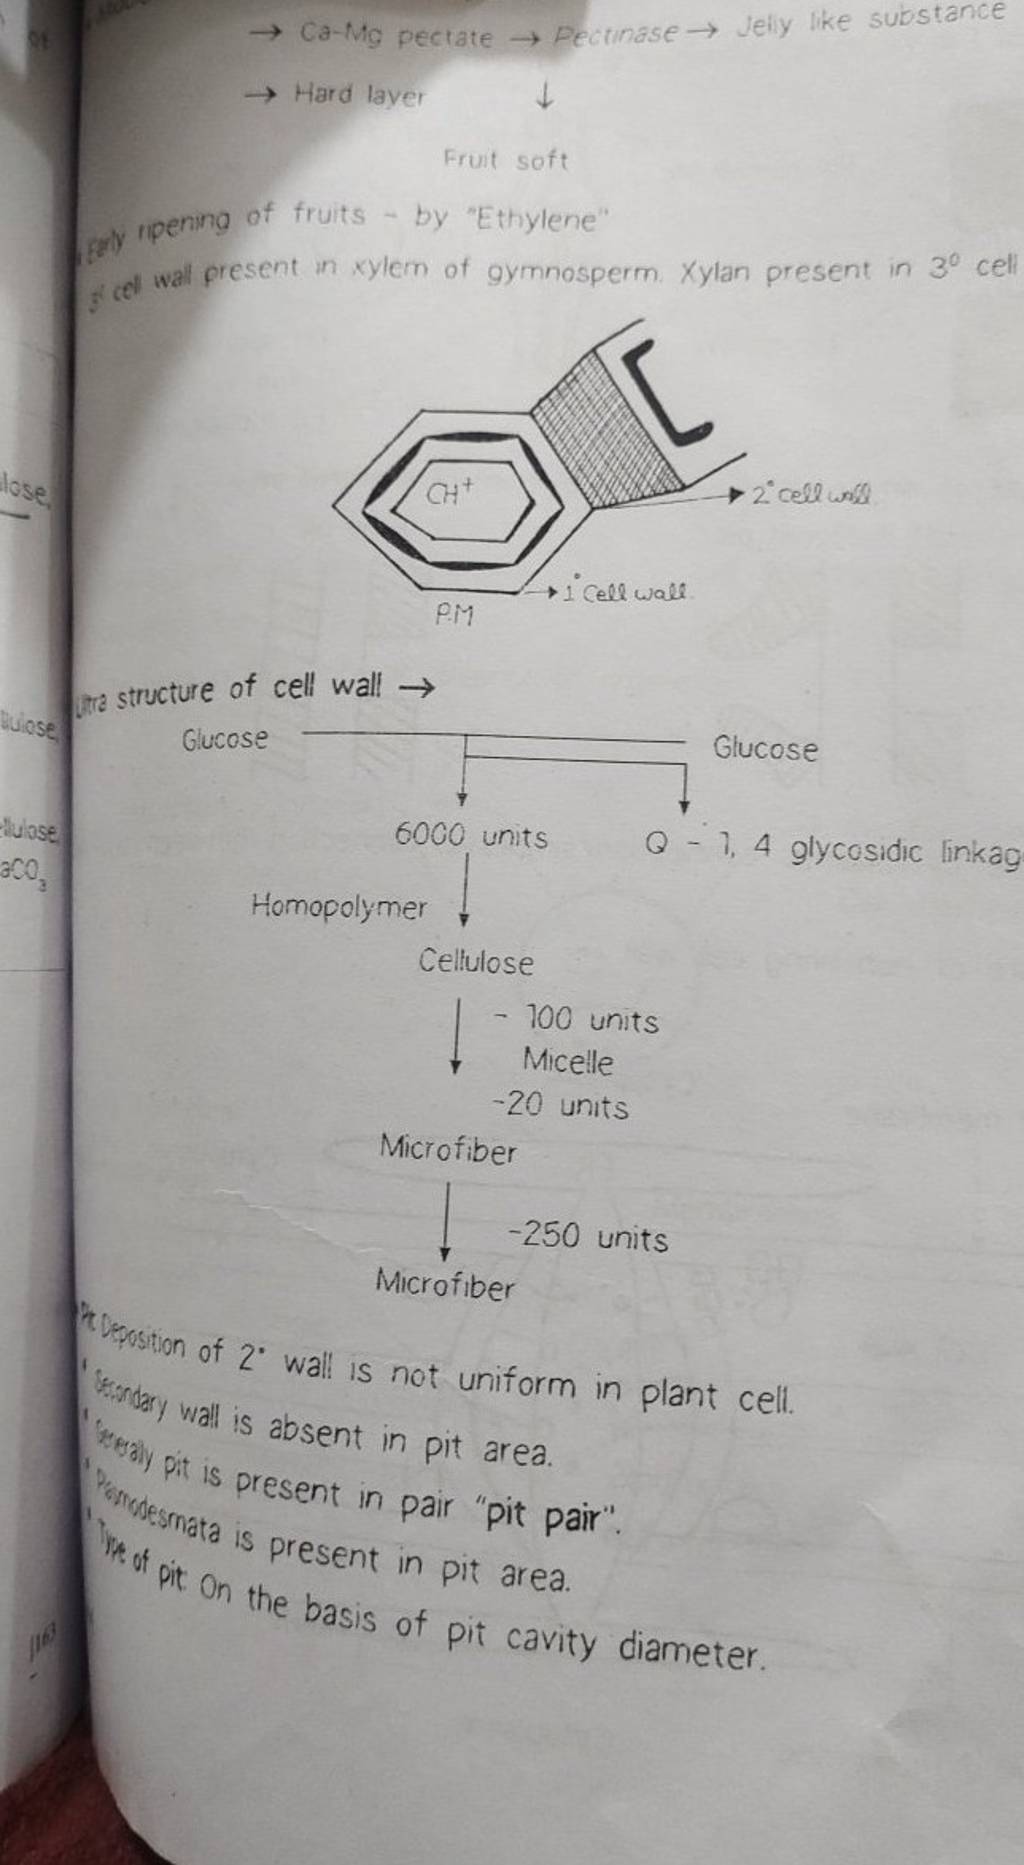 → Ca-Mg pectate → Pectinase → Jelly like substance
→ Hard layer ↓
Fruit soft
Early ripening of fruits - by "Ethylene"
3° cell wall present in xylem of gymnosperm. Xylan present in 3° cell
CH+
2° cell wall
1° cell wall.
P.M
Ultra structure of cell wall →
Glucose Glucose
6000 units Q - 1, 4 glycosidic linkag
Homopolymer
Cellulose
- 100 units
Micelle
-20 units
Microfiber
-250 units
Microfiber
Pit: Deposition of 2° wall is not uniform in plant cell.
• Secondary wall is absent in pit area.
• Generally pit is present in pair "pit pair".
• Plasmodesmata is present in pit area.
• Type of pit: On the basis of pit cavity diameter.
lose,
llulose,
ellulose,
aCO3